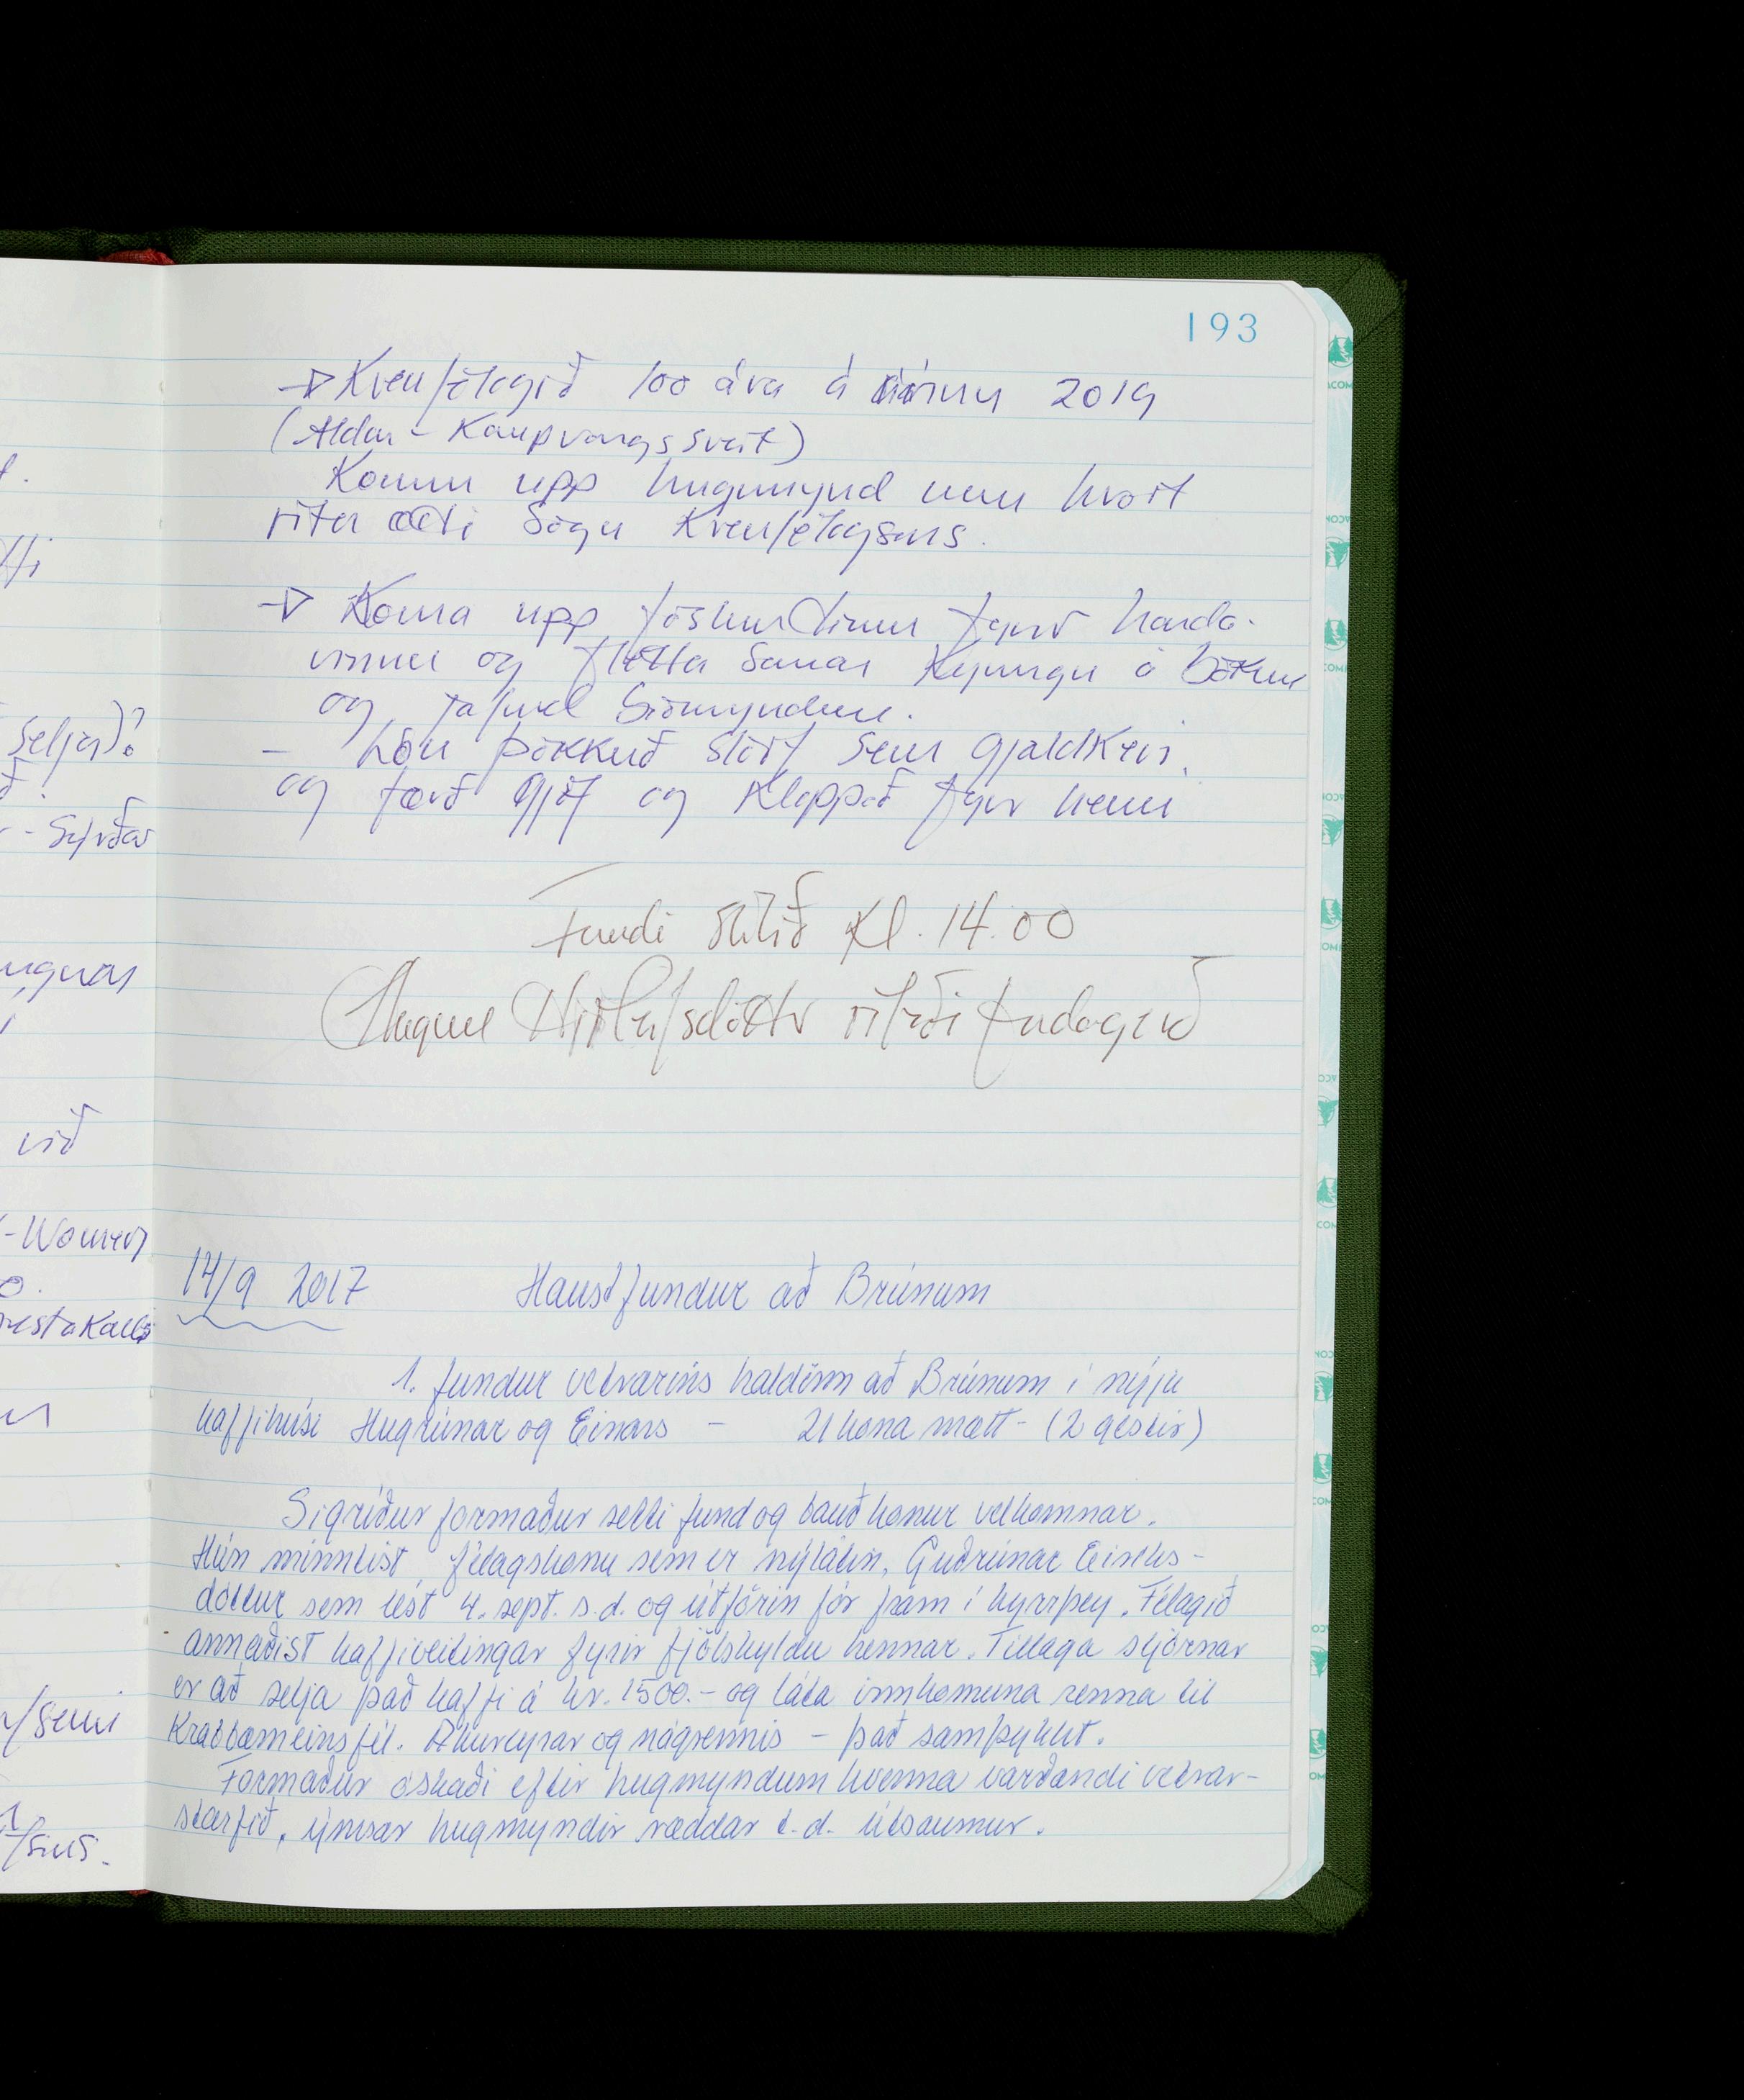 193
→ Kvenfélagið 100 ára á árinu 2019
(Aldan - Kaupvangssveit)
Komu upp hugmynd um hvort
rita ætti sögu Kvenfélagsins.
→ Koma upp föstum tímum fyrir handa-
vinnu og flétta saman kynningu á bókum
og jafnvel bíómyndum.
- þökkuð störf sem gjaldkeri,
og færð gjöf og klappað fyrir henni
Fundi slitið kl. 14.00
ritaði fundagerð
14/9 2017 Haustfundur að Brúnum
1. fundur vetrarins haldinn að Brúnum í nýju
kaffihúsi Hugrúnar og Einars - 21 kona mætt - (2 gestir)
Sigríður formaður setti fund og bauð konur velkomnar.
Hún minntist félagskonu sem er nýlátin, Guðrúnar Eiríks-
dóttur sem lést 4. sept. s.d. og útförin fór fram í kyrrþey. Félagið
annaðist kaffiveitingar fyrir fjölskyldu hennar. Tillaga stjórnar
er að selja það kaffi á kr. 1500.- og láta innkomuna renna til
Krabbameinsfél. Akureyrar og nágrennis - það samþykkt.
Formaður óskaði eftir hugmyndum kvenna varðandi vetrar-
starfið, ýmsar hugmyndir ræddar t.d. útsaumur.